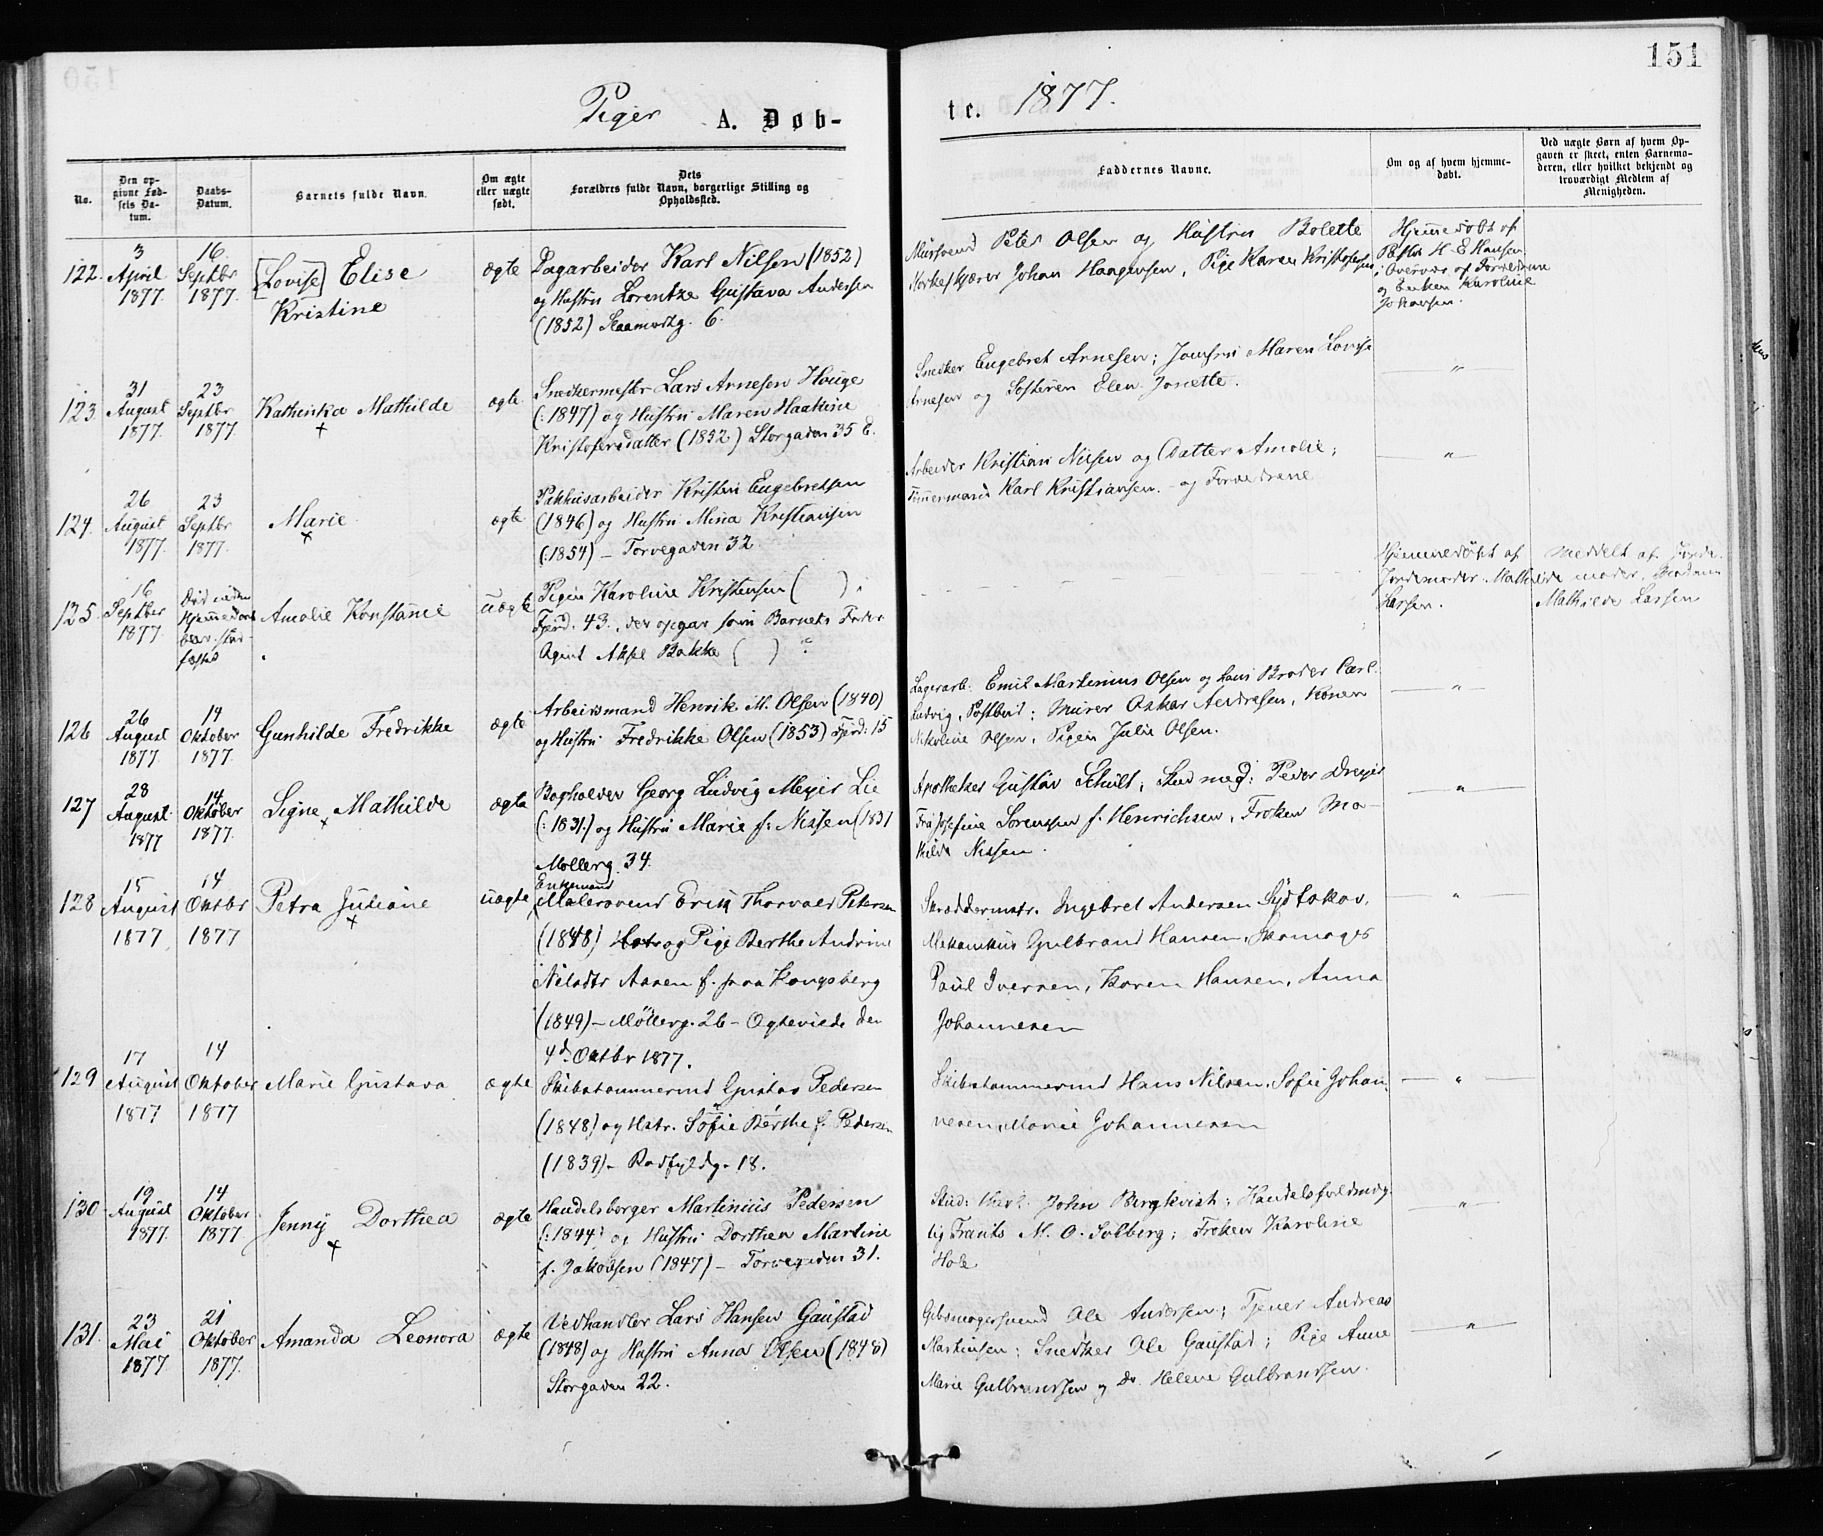 151
Piger A. Døb-
te. 1877.
No.
Den op-
givne Fød-
sels Da-
tum.
Daabs-
Datum.
Barnets fulde Navn.
Om ægte
eller uægte
født.
Dets
Forældres fulde Navn, borgerlige Stilling og
Opholdssted.
Faddernes Navne.
Om og af hvem hjemme-
døbt.
Ved uægte Børn af hvem Op-
gaven er skeet, enten Barnemo-
deren, eller hvilket bekjendt og
troværdigt Medlem af
Menigheden.
122.
3
April
1877
16
Septbr
1877.
[Lovise] Elise
Kristine
ægte
Dagarbeider Karl Nilsen (1852)
og Hustru Lorentze Gustava Andersen
(1852) 6.
Mursvend Peter Olsen og Hustru Bolette
Korkeskjærer Johan Haagensen, Pige Karen Kristofersen
Hjemmedøbt af
Pastor H. E. Hansen
i Overvær af Forældrene
og Enken Karoline
Johansen.
123.
31
August
1877
23
Septbr
1877.
Kathinka Mathilde
+
ægte
Snedkermester Lars Arnesen Houge
(: 1847) og Hustru Maren Haakine
Kristofersdatter (1852) Storgaden 35 E.
Snedker Engebret Arnesen; Jomfru Maren Lovise
Arnesen og Søsteren Elen Jonette.
— „ —
124.
26
August
1877.
23
Septbr
1877.
Marie
+
ægte
Pakhusarbeider Kristen Engebretsen
(1846) og Hustru Mina Kristiansen
(: 1854) – Torvegaden 32
Arbeider Kristian Nilsen og Datter Amalie;
Tømmermand Karl Kristiansen. – og Forældrene
— „ —
125.
16
Septber
1877.
Død uden
Amalie Konstanse
uægte
Pigen Karoline Kristensen ( ) i
Fjerd. 43., der opgav som Barnets Fader
Agent Aksel Bakke ( )
– – – – –
Hjemmedøbt af
Jordemoder Mathilde
Larsen.
Meddelt af Jorde-
moder, Madam
Mathilde Larsen
126
26
August
1877
14
Oktober
1877.
Gunhilde Fredrikke
ægte
Arbeidsmand Henrik M. Olsen (1840)
og Hustru Fredrikke Olsen (1853) Fjerd: 15
Lagerarb. Emil Martinius Olsen og hans Broder Carl
Ludvig, Postbud; Murer Oskar Andresen, Konen
Nikoline Olsen, Pigen Julie Olsen.
— „ —
127
28
August.
1877
14
Oktober
1877.
Signe Mathilde
+
ægte
Bogholder Georg Ludvig Meyer Lie
(: 1831.) og Hustru Marie f. Nissen (1837
Møllerg. 34.
Apotheker Gustav Schult; Stud med: Peder Dreyer
Fru Josefine Sørenssen f. Henrichsen, Frøken Ma-
thilde Nissen.
— „ —
128
15
August
1877
14
Oktbr
1877
Petra Juliane
+
uægte
Enkemand
Malersvend Erik Thorvald Petersen
(1848) Hstr og Pige Berthe Andrine
Nilsdtr Aasen f. paa Kongsberg
(1849) – Møllerg. 26 – Ægteviede den
4d. Oktbr 1877.
Skræddermstr. Ingebret Andersen
Mekanikus Gulbrand Hansen, Skomager
Paul Iversen, Karen Hansen, Anna
Johannesen
— „ —
129
17
August
1877
14
Oktober
1877
Marie Gustava
ægte
Skibstømmermd Gustav Pedersen
(1848) og Hstr. Sofie Berthe f. Pedersen
(1839) – Rødfyldg. 18.
Skibstømmermd Hans Nilsen, Sofie Johan-
nesen, Marie Johannesen
— „ —
130
19
August
1877.
14
Oktober
1877
Jenny Dorthea
+
ægte
Handelsborger Martinius Pedersen
(: 1844) og Hustru Dorthea Martine
f. Jakobsen (1847) – Torvegaden 31.
Stud: John Bergkvist; Handelsfuldmæg-
tig Frants M. O. Solberg; Frøken Karoline
Hole
— „ —
131.
23
Mai
1877
21
Oktober
1877.
Amanda Leonora
ægte
Vedhandler Lars Hansen Gaustad
(1848) og Hustru Anna Olsen (1848)
Storgaden 22.
Gibsmagersvend Ole Andersen; Tjener Andreas
Martinsen; Snedker Ole Gaustad; Pige Anne
Marie Gulbrandsen og Do. Helene Gulbrandsen.
— „ —